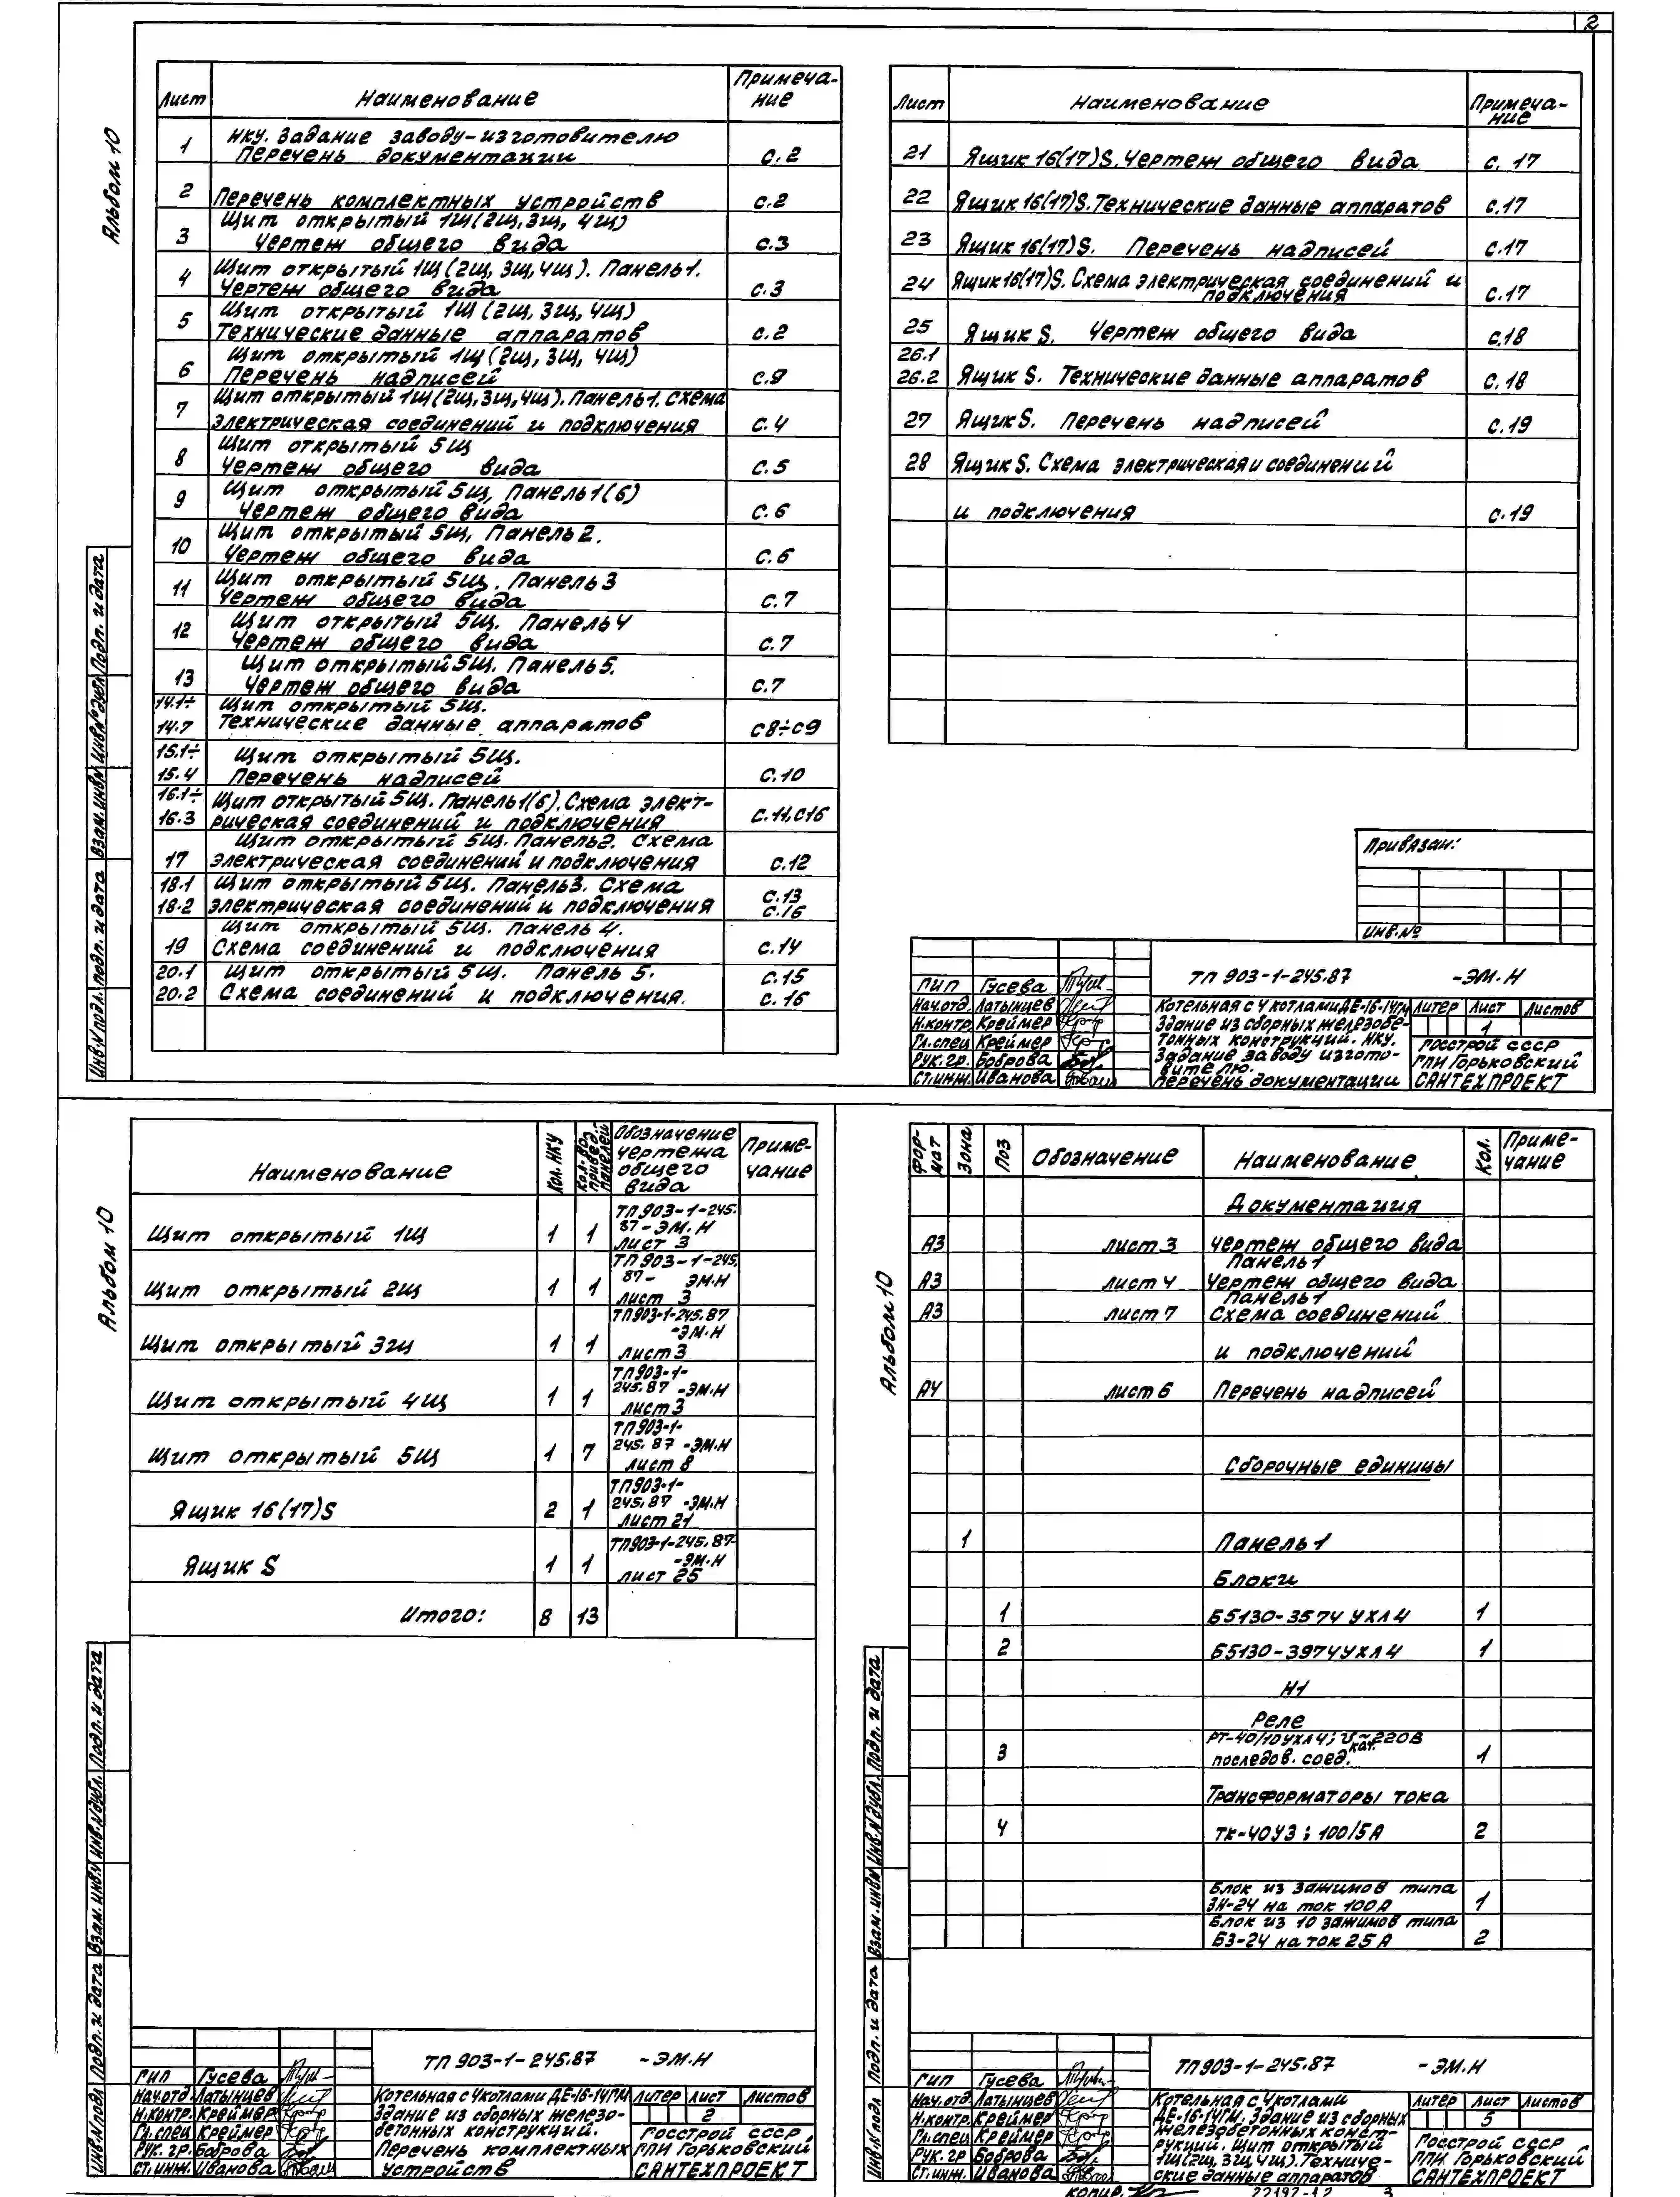 2
Альбом 10
Лист Наименование Примеча-
ние
1 НКУ. Задание заводу-изготовителю
Перечень документации с.2
2 Перечень комплектных устройств с.2
3 Щит открытый 1Щ(2Щ,3Щ,4Щ)
Чертеж общего вида с.3
4 Щит открытый 1Щ(2Щ,3Щ,4Щ). Панель1.
Чертеж общего вида с.3
5 Щит открытый 1Щ(2Щ,3Щ,4Щ)
Технические данные аппаратов с.2
6 Щит открытый 1Щ(2Щ,3Щ,4Щ)
Перечень надписей с.9
7 Щит открытый 1Щ(2Щ,3Щ,4Щ).Панель1. Схема
электрическая соединений и подключения с.4
8 Щит открытый 5Щ
Чертеж общего вида с.5
9 Щит открытый 5Щ, Панель1(6)
Чертеж общего вида с.6
10 Щит открытый 5Щ, Панель2.
Чертеж общего вида с.6
11 Щит открытый 5Щ. Панель3
Чертеж общего вида с.7
12 Щит открытый 5Щ. Панель4
Чертеж общего вида с.7
13 Щит открытый 5Щ. Панель5.
Чертеж общего вида с.7
14.1÷ Щит открытый 5Щ.
14.7 Технические данные аппаратов с8÷с9
15.1÷ Щит открытый 5Щ.
15.4 Перечень надписей с.10
16.1÷ Щит открытый 5Щ. Панель1(6). Схема элект-
16.3 рическая соединений и подключения с.11,с16
Щит открытый 5Щ. Панель2. Схема
17 электрическая соединений и подключения с.12
18.1 Щит открытый 5Щ. Панель3. Схема с.13
18.2 электрическая соединений и подключения с.16
Щит открытый 5Щ. Панель 4.
19 Схема соединений и подключения с.14
20.1 Щит открытый 5Щ. Панель 5. с.15
20.2 Схема соединений и подключения. с.16
Лист Наименование Примеча-
ние
21 Ящик 16(17)S. Чертеж общего вида с. 17
22 Ящик 16(17)S. Технические данные аппаратов с.17
23 Ящик 16(17)S. Перечень надписей с.17
24 Ящик 16(17)S. Схема электрическая соединений и
подключения с.17
25 Ящик S. Чертеж общего вида с.18
26.1
26.2 Ящик S. Технические данные аппаратов с.18
27 Ящик S. Перечень надписей с.19
28 Ящик S. Схема электрическая и соединений
и подключения с.19
Привязан:
Инв.№
Инв.№подл. Подп. и дата Взам.инв№ Инв№дубл Подп. и дата
ТП 903-1-245.87 -ЭМ.Н
ГИП Гусева
Нач.отд. Латынцев
Н.контр. Креймер
Гл.спец Креймер
Рук. гр. Боброва
Ст.инж. Иванова
Котельная с 4 котлами ДЕ-16-14ГМ
Здание из сборных железобе-
тонных конструкций. НКУ.
Задание заводу изгото-
вителю.
Перечень документации
Литер Лист Листов
1
Госстрой СССР
ГПИ Горьковский
САНТЕХПРОЕКТ
Альбом 10
Наименование Кол. НКУ Кол-во привед. панелей Обозначение
чертежа
общего
вида Приме-
чание
Щит открытый 1Щ 1 1 ТП 903-1-245.
87-ЭМ.Н
лист 3
Щит открытый 2Щ 1 1 ТП 903-1-245.
87- ЭМ.Н
лист 3
Щит открытый 3Щ 1 1 ТП903-1-245.87
-ЭМ.Н
лист3
Щит открытый 4Щ 1 1 ТП903-1-
245.87 -ЭМ.Н
лист3
Щит открытый 5Щ 1 7 ТП903-1-
245.87 -ЭМ.Н
лист 8
Ящик 16(17)S 2 1 ТП903-1-
245.87 -ЭМ.Н
лист 21
Ящик S 1 1 ТП903-1-245.87-
-ЭМ.Н
лист 25
Итого: 8 13
Инв.№подл Подп. и дата Взам. инв№ Инв.№дубл. Подп. и дата
ТП 903-1-245.87 -ЭМ.Н
ГИП Гусева
Нач.отд. Латынцев
Н.контр. Креймер
Гл.спец Креймер
Рук. гр. Боброва
Ст.инж. Иванова
Котельная с 4котлами ДЕ-16-14ГМ
Здание из сборных железо-
бетонных конструкций.
Перечень комплектных
устройств
Литер Лист Листов
2
Госстрой СССР
ГПИ Горьковский
САНТЕХПРОЕКТ
Альбом 10
Фор-
мат Зона Поз Обозначение Наименование Кол. Приме-
чание
Документация
А3 лист 3 Чертеж общего вида
Панель 1
А3 лист 4 Чертеж общего вида
Панель 1
А3 лист 7 Схема соединений
и подключений
А4 лист 6 Перечень надписей
Сборочные единицы
1 Панель 1
Блоки
1 Б5130-3574 УХЛ4 1
2 Б5130-3974УХЛ4 1
Н1
Реле
РТ-40/10УХЛ4; U~220В
кат.
3 последов. соед. 1
Трансформаторы тока
4 ТК-40У3; 100/5А 2
Блок из зажимов типа
ЗН-24 на ток 100А 1
Блок из 10 зажимов типа
БЗ-24 на ток 25А 2
Инв.№подл Подп. и дата Взам.инв№ Инв.№дубл. Подп. и дата
ТП903-1-245.87 -ЭМ.Н
ГИП Гусева
Нач.отд. Латынцев
Н.контр. Креймер
Гл.спец Креймер
Рук. гр Боброва
Ст.инж. Иванова
Котельная с 4котлами
ДЕ-16-14ГМ. Здание из сборных
железобетонных конст-
рукций. Щит открытый
1Щ(2Щ,3Щ,4Щ). Техниче-
ские данные аппаратов
Литер Лист Листов
5
Госстрой СССР
ГПИ Горьковский
САНТЕХПРОЕКТ
копир.
22197-12 3